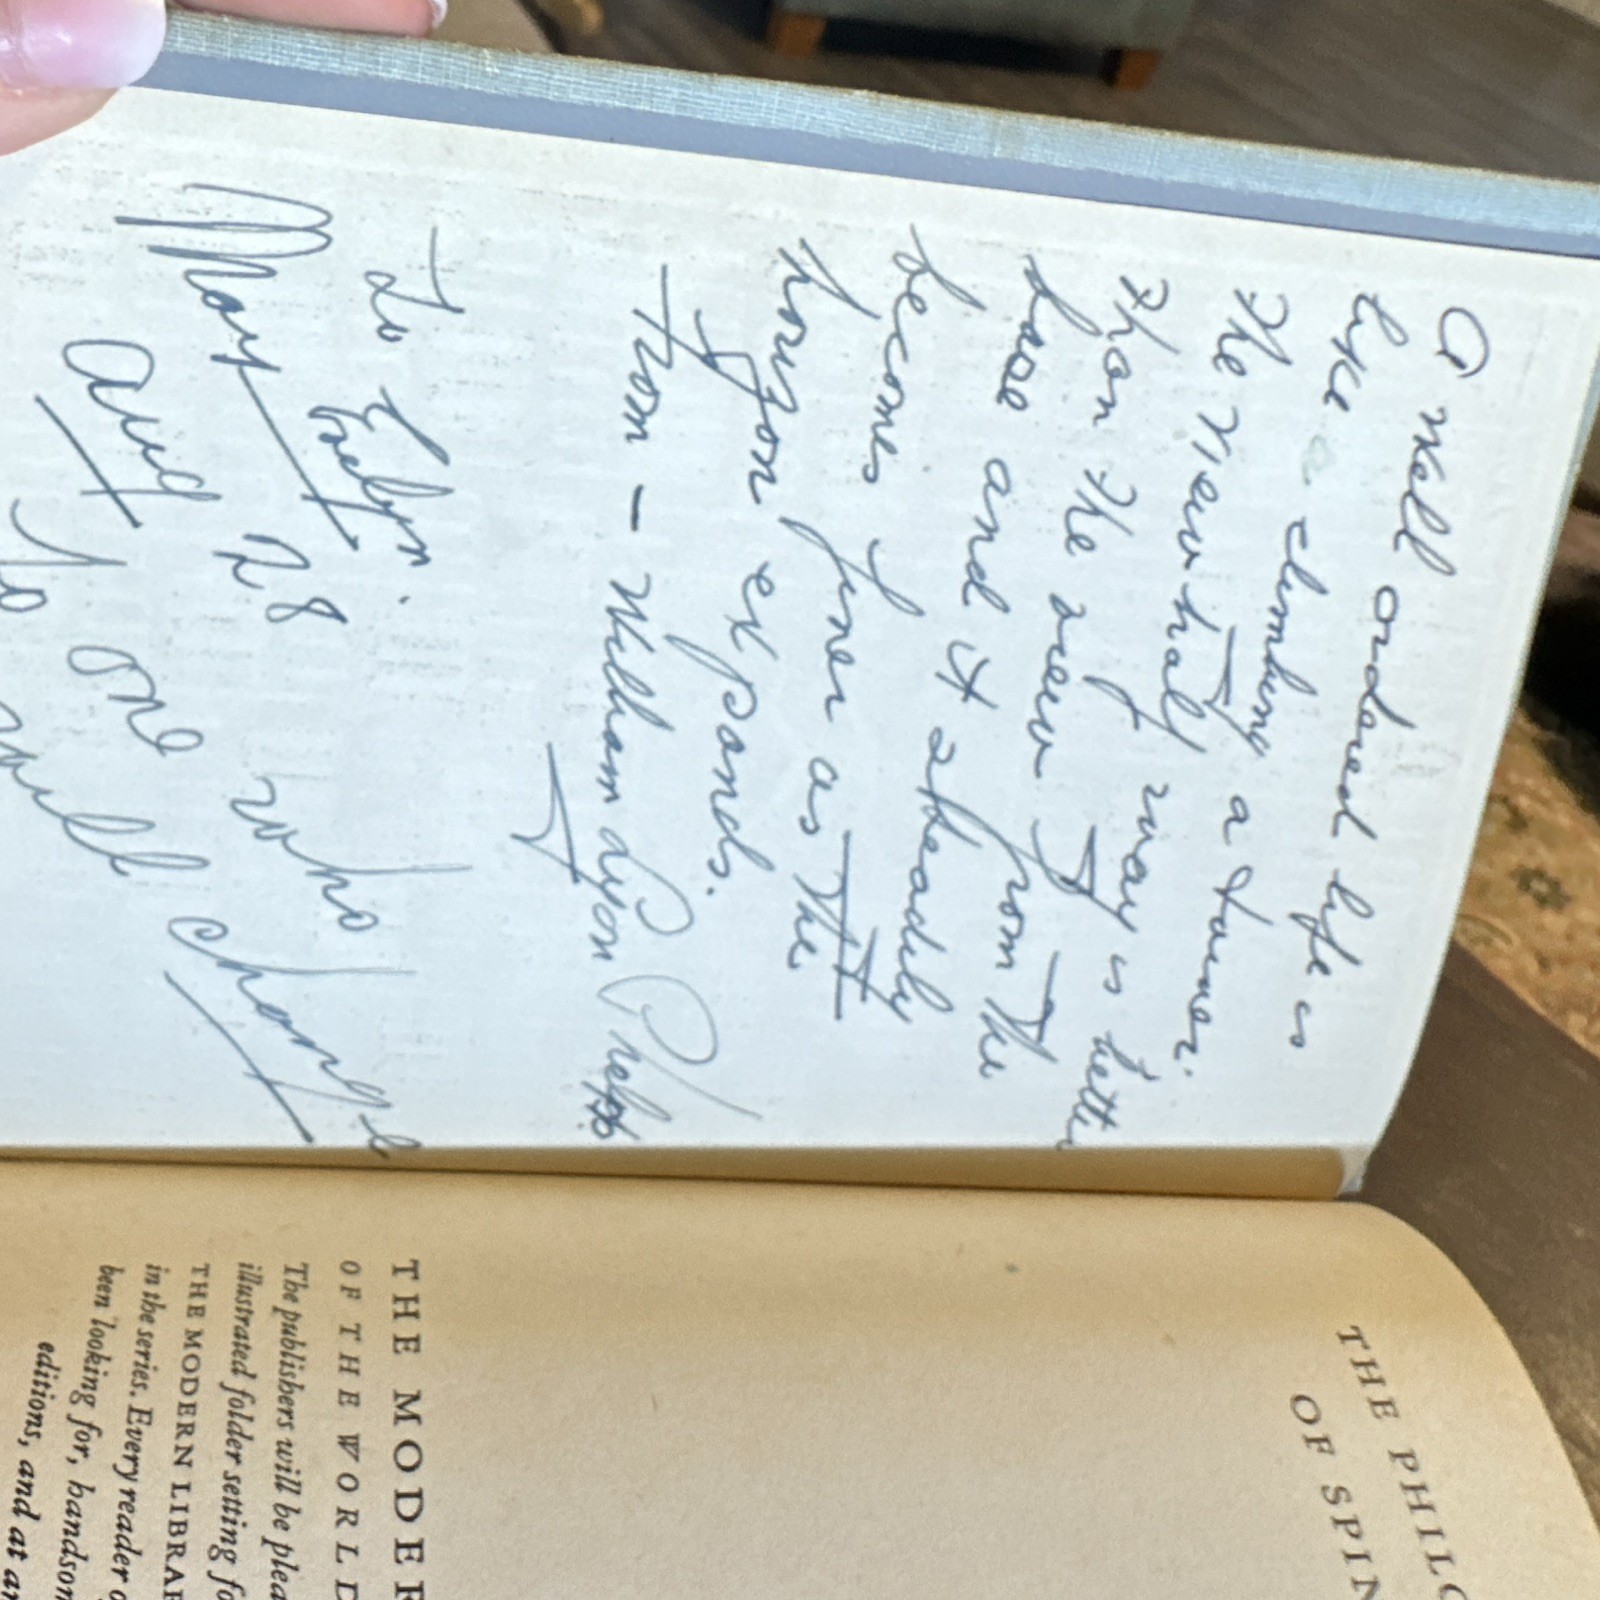 A well ordered life is
like climbing a tower.
The view half way is better
than the view from the
base and it steadily
becomes finer as the
horizon expands.
from - William Lyon Phelps
To Evelyn.
May and who
Aug 28 change
To one
would
THE PHILO
OF SPIN
THE MODER
OF THE WORLD
The publishers will be plea
illustrated folder setting fo
THE MODERN LIBRAR
in the series. Every reader o
been looking for, handsom
editions, and at an